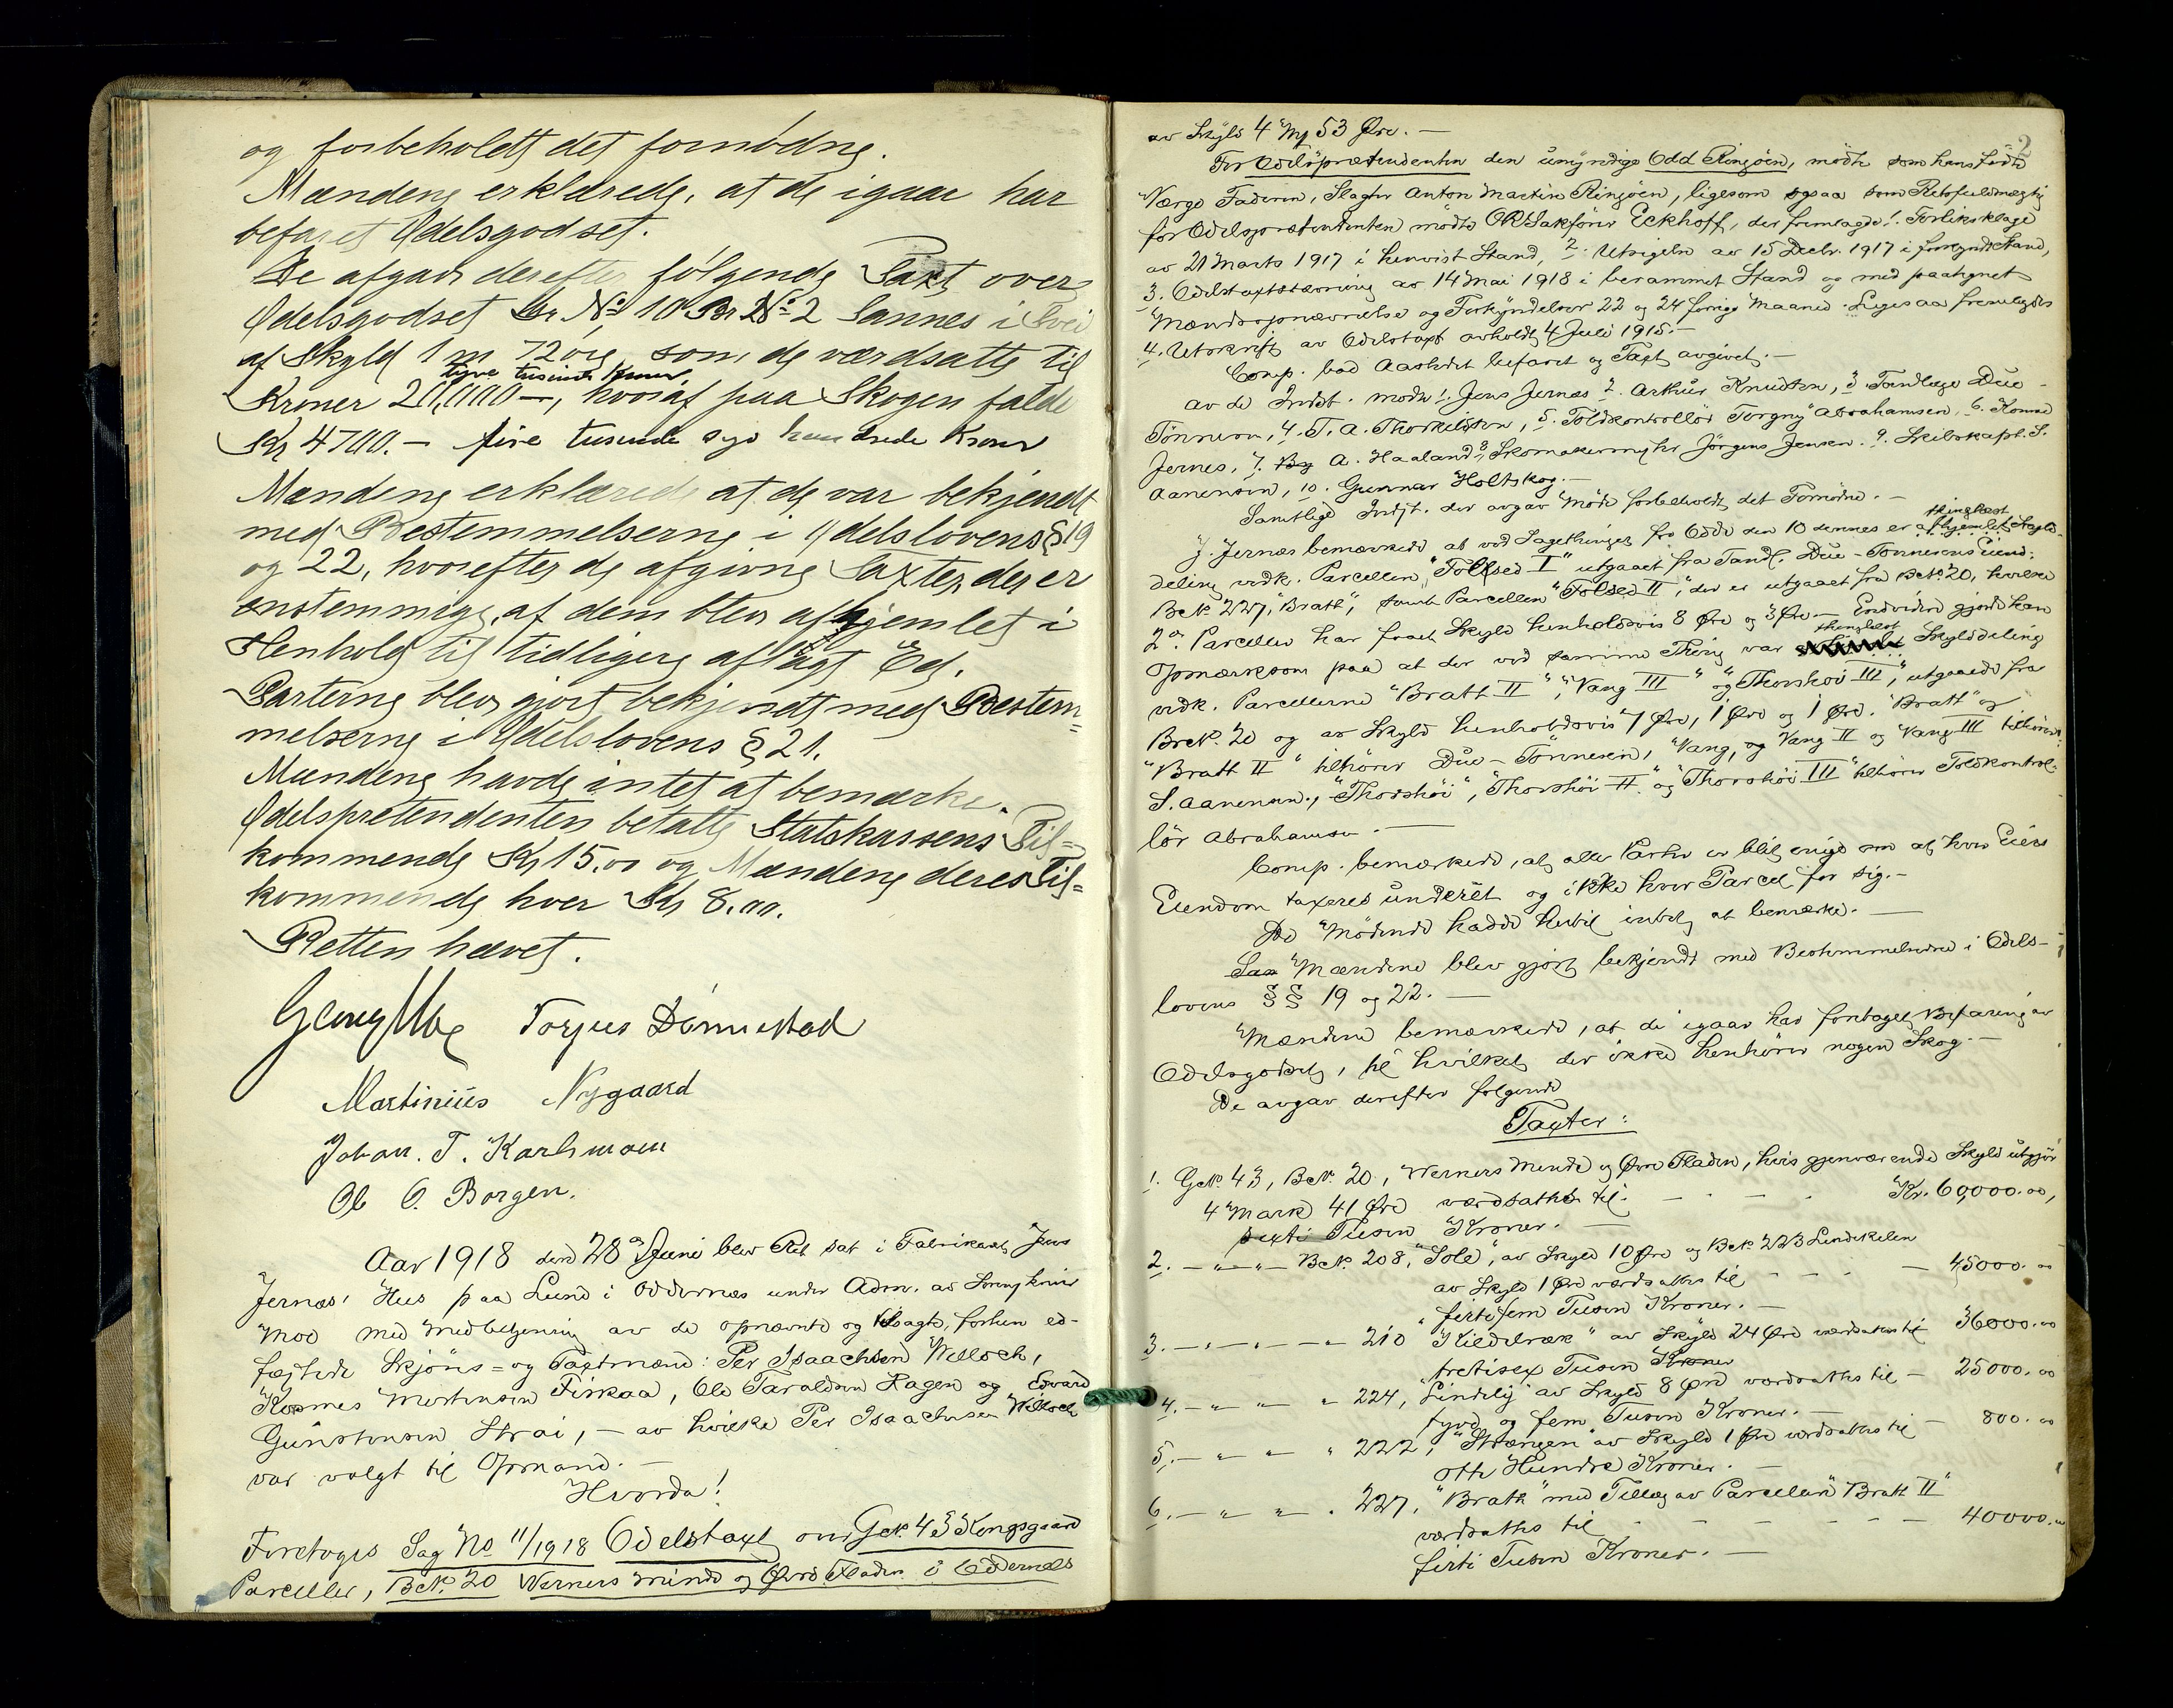 og forbeholdt det fornødne.
Mændene erklærede, at de igaar har
befaret Odelsgodset.
De afgav derefter følgende Taxt over
Odelsgodset Gr No 10 Br No 2 Sannes i
af Skyld 1 m 72 øre, som de værdsatte til
tyve tusinde kroner
Kroner 20,000 —, hvoraf paa Skogen falde
Kr 4700.- fire tusende syv hundrede Kroner
Mændene erklærede at de var bekjendt
med Bestemmelserne i Odelslovens § 19
og 22, hvorefter de afgivne Taxter, der er
enstemmige, af dem blev afhjemlet i
Henhold til tidligere aflagt Ed.
Parterne blev gjort bekjendt med Bestem=
melserne i Odelslovens § 21.
Mændene havde intet at bemærke.
Odelspretendenten betalte Statskassens Til=
kommende Kr 15.00 og Mændene deres Til=
kommende hver Kr 8.00.
Retten hævet.
Torjus Dønnestad
Martinius Nygaard
Johan. T. Karlsmoen
Ole O. Borgen.
Aar 1918 den 28 Juni blev Ret sat i Fabrikant Jens
Jernæs' Hus paa Lund i Oddernes under Adm. av Sorenskriver
Moe med Medbetjening av de opnævnte og tilsagte, forhen ed-
fæstede Skjøns= og Taxtmænd: Per Isaachsen Welloch,
Kosmes Mortensen Fiskaa, Ole Taraldsen Hagen og Edvard
Gunstensen Strai, — av hvilke Per Isaachsen Welloch
var valgt til Opmand. —
Hvorda!
Foretoges Sag No 11/1918 Odelstaxt over Gr. 43 Kongsgaard
Parceller, Br. 20 Werners Minde og Øvre Fladen i Oddernes
2
av Skyld 4 Mk 53 Øre. —
For Odelsprætendenten den umyndige Odd Ringøen, mødte som hans fødte
Værge Faderen, Slagter Anton Martin Ringøen, ligesom ogsaa som Retsfuldmægtig
for Odelsprætendenten mødte ORSakfører Eckhoff, der fremlagde 1. Forliksklage
av 21 Marts 1917 i henvist Stand, 2. Utsigelse av 15 Decbr. 1917 i forkyndt Stand,
3. Odelstaxtstævning av 14 Mai 1918 i berammet Stand og med paategnet
Mændsopnævnelse og Forkyndelser 22 og 24 forrige Maaned. Ligesaa fremlagdes
4. Utskrift av Odelstaxt avholdt 4 Juli 1918. —
Comp. bad Aastedet befaret og Taxt avgivet. —
Av de Indst. mødte 1. Jens Jernæs 2. Arthur Knudsen, 3 Tandlæge Due -
Tønnesen, 4. T. A. Thorkildsen, 5. Toldkontrollør Torgny Abrahamsen, 6. Konrad
Jernes, 7. By A. Haaland 8. Skomakermester Jørgens Jensen. 9. Skibskapt. S.
Aanensen, 10. Gunnar Holtskog. —
Samtlige Indst. der avgav Møde forbeholdt det Fornødne. —
thinglæst
J. Jernæs bemærkede at ved Sagethinget for Odde den 10 dennes er afhjemlet Skyld-
deling vedk. Parcellen "Tolsed I" utgaaet fra Tandl. Due-Tønnesens Eiend:
Br. 227, "Bratt", samt Parcellen "Tolsed II", der er utgaaet fra Br. 20, hvilke
2de Parceller har faaet Skyld henholdsvis 8 Øre og 3 Øre — Endvidere gjorde han
thinglæst
Opmærksom paa at der ved samme Thing var Skylddeling
vedk. Parcellerne "Bratt II", "Vang III" og "Thorshøi III", utgaaede fra
Br. 20 og av Skyld henholdsvis 7 Øre, 1 Øre og 1 Øre. "Bratt" og
"Bratt II" tilhører Due-Tønnesen, "Vang, og Vang II og Vang III tilhører:
S. Aanensen., "Thorshøi", "Thorshøi II" og "Thorshøi III" tilhører Toldkontrol-
lør Abrahamsen. —
Comp. bemærkede, at alle Parter er blit enige om at hver Eiers
Eiendom taxeres under ét og ikke hver Parcel for sig. —
De Mødende hadde hertil intet at bemærke. —
Mændene blev gjort bekjendt med Bestemmelserne i Odels-
lovens §§ 19 og 22. —
Mændene bemærkede, at de igaar har foretaget Befaring av
Odelsgodset, til hvilket der ikke henhører nogen Skog. —
De avgav derefter følgende
Taxter:
1. Gr. 43, Br. 20, Werners Minde og Øvre Fladen, hvis gjenværende Skyld utgjør
4 Mark 41 Øre værdsattes til. Kr. 60,000.00,
sexti Tusen Kroner. —
2. — " — " — Br. 208, "Sole", av Skyld 10 Øre og Br. 223 Lindekilen
av Skyld 1 Øre værdsattes til — 45000.00
firtifem Tusen Kroner. —
3. — " — " — " 210 "Kildebræk" av Skyld 24 Øre værdsattes til 36000.00
trettisex Tusen Kroner
4. — " " " 224, "Lindeli" av Skyld 8 Øre værdsattes til — 25000.00
tyve og fem Tusen Kroner. —
5. — " " " 222, "Strængen" av Skyld 1 Øre værdsattes til — 800.00
otte Hundre Kroner. —
6. — " " " 227, "Bratt" med Tillæg av Parcellen "Bratt II"
værdsattes til — 40000.00
firti Tusen Kroner. —